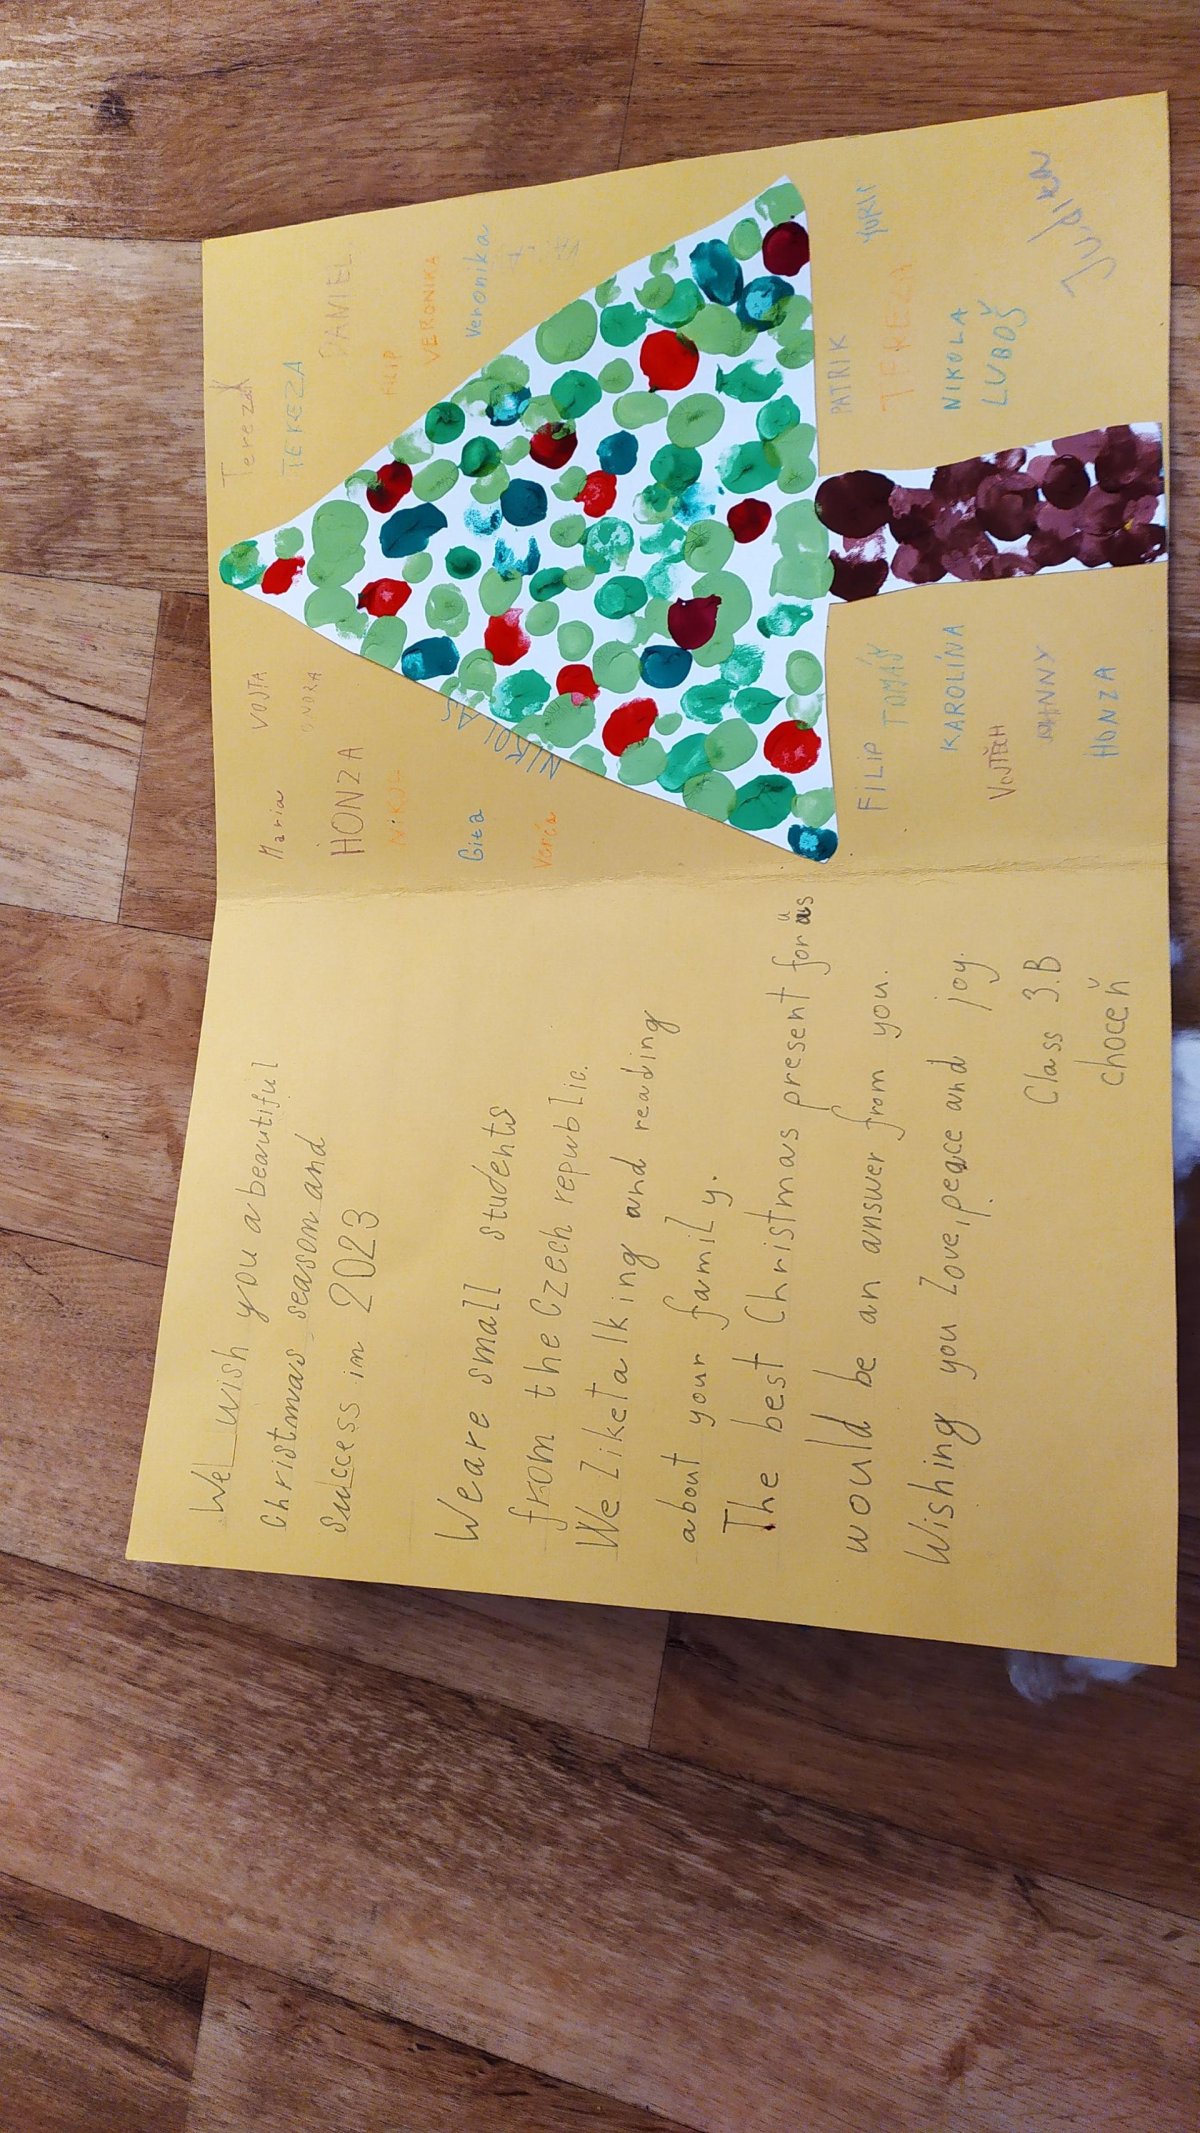 We wish you a beautiful
Christmas season and
Success in 2023
We are small students
from the Czech republic.
We like talking and reading
about your family.
The best Christmas present for us
would be an answer from you.
Wishing you love, peace and joy.
Class 3.B
Choceň
Maria VOJTA
ONDRA
HONZA
NIKOL
NIKOLAS
Gita
Verča
Tereza
TEREZA
DANIEL
FILIP
VERONIKA
Veronika
FILIP TOMÁŠ
KAROLÍNA
VOJTĚCH
HONZA
PATRIK YURII
TEREZA
NIKOLA
LUBOŠ